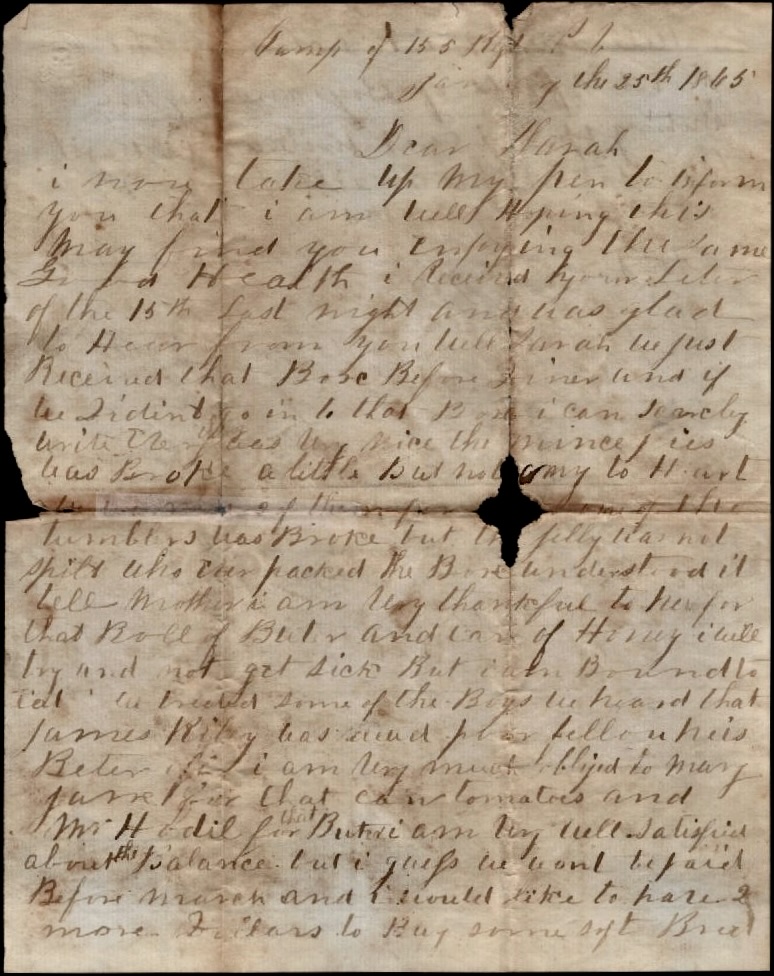 Camp of 155 Regt P V
January the 25th 1865
Dear Sarah
i now take up my pen to inform
you that i am well Hoping this
May find you enjoying the same
Good Health i received your Leter
of the 15th Last night and was glad
to Hear from you well Sarah we just
Received that Box Before Diner and if
we Dident go in to that Box i can scarcely
write they was very nice the mince pies
was Broke a little but not any to Hurt
of them of the
tumblers was Broke but the jelly was not
spilt who ever packed the Box understood it
tell Mother i am very thankful to her for
that Roll of Buter and can of Honey i will
try and not get sick But i am Bound to
eat we treated some of the Boys we heard that
James Kiley was dead poor fellow he is
Beter off i am very much oblijed to Mary
Jane for that can tomatoes and
Mr Hodil for that Buter i am very well satisfied
about the Balance but i guess we wont be paid
Before march and i would like to have 2
more Dollars to Buy some soft Bred